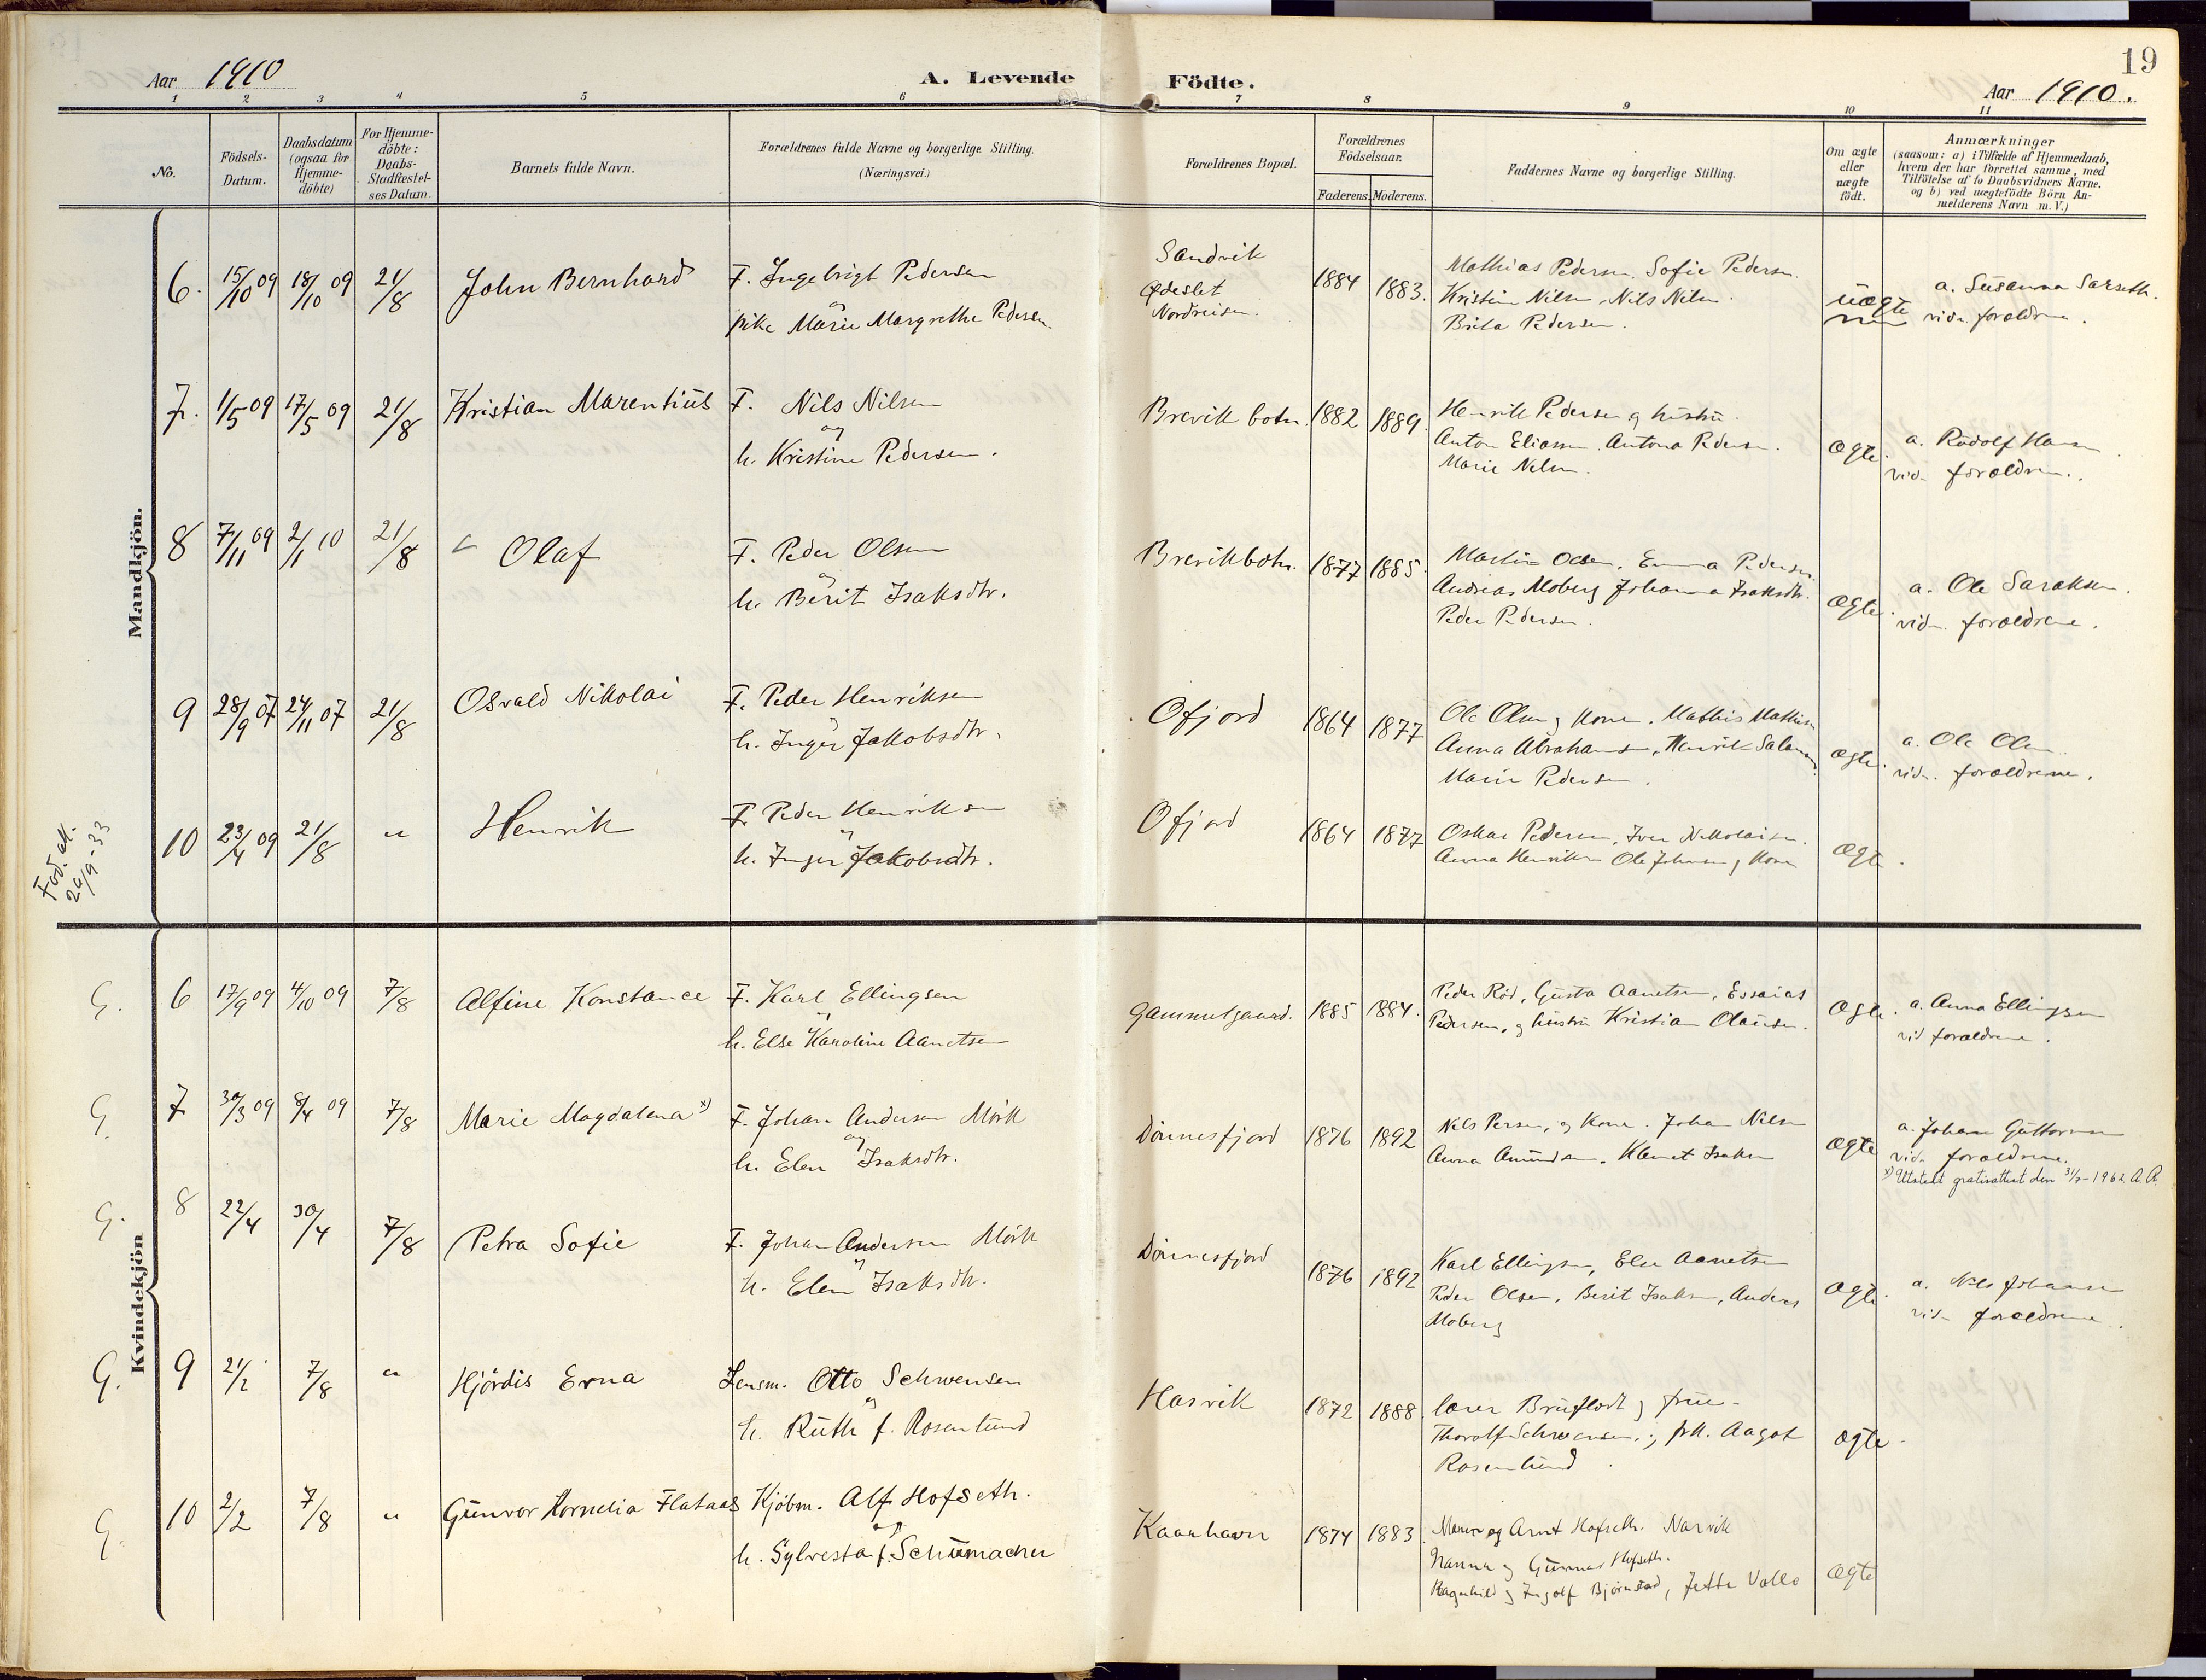 19
Aar 1910
A. Levende Födte.
Aar 1910.
1 2 3 4 5 6 7 8 9 10 11
No.
Födsels-Datum.
Daabsdatum (ogsaa for Hjemme-döbte)
For Hjemme-döbte: Daabs-Stadfæstel-ses Datum.
Barnets fulde Navn.
Forældrenes fulde Navne og borgerlige Stilling. (Næringsvei.)
Forældrenes Bopæl.
Forældrenes Födselsaar.
Faderens. Moderens.
Faddernes Navne og borgerlige Stilling.
Om ægte eller uægte födt.
Anmærkninger
(saasom: a) i Tilfælde af Hjemmedaab,
hvem der har forrettet samme, med
Tilföielse af to Daabsvidners Navne.
og b) ved uægtefödte Börn An-
melderens Navn m. V.)
Mandkjön.
6. 15/10 09 18/10 09 21/8 John Bernhard
F. Ingebrigt Pedersen
og
pike Marie Margrethe Pedersen.
Sandvik
Ødeslet
Nordreisen.
1884 1883.
Mathias Pedersen. Sofie Pedersen.
Kristine Nilsen, Nils Nilsen.
Brita Pedersen.
uægte
a. Susanna Sarseth.
vidn. forældrene.
7. 1/5 09 17/5 09 21/8 Kristian Marentius
F. Nils Nilsen
og
h. Kristine Pedersen.
Brevik botn. 1882 1889.
Henrik Pedersen og hustru.
Anton Eliassen. Antona Pedersen.
Marie Nilsen.
ægte.
a. Rudolf Hansen.
vidn. forældrene.
8 7/11 09 2/1 10 21/8 Olaf
F. Peder Olsen
og
h. Berit Isaksdtr.
Brevikbotn. 1877 1885.
Martin Olsen, Emma Pedersen.
Andreas Moberg Johanna Isaksdtr.
Peder Pedersen.
ægte.
a. Ole Saraksen.
vidn. forældrene.
9 28/9 07 24/11 07 21/8 Osvald Nikolai
F. Peder Henriksen
og
h. Inger Jakobsdtr.
Ofjord 1864 1877
Ole Olsen og Kone. Mathis Mathisen
Anna Abrahamsen, Henrik Salamonsen
Marie Pedersen.
ægte.
a. Ole Olsen.
vidn. forældrene.
Fød. att.
24/9-33
10 23/4 09 21/8 " Henrik
F. Peder Henriksen
og
h. Inger Jakobsdtr.
Ofjord 1864 1877
Oskar Pedersen, Iver Nikolaisen.
Anna Henriksen Ole Johnsen og Kone
ægte.
Kvindekjön
G. 6 17/9 09 4/10 09 7/8 Alfine Konstance
F. Karl Ellingsen
og
h. Else Karoline Aanetsen
Gammelgaard. 1885 1884.
Peder Röd, Gusta Aanetsen, Essaias
Pedersen, og hustru Kristian Olausen.
ægte.
a. Anna Ellingsen
vid forældrene.
G. 7 30/3 09 8/4 09 7/8 Marie Magdalena x)
F. Johan Andersen Mörk
og
h. Elen Isaksdtr.
Dönnesfjord 1876 1892
Nils Persen, og Kone. Johan Nilsen
Anna Amundsen. Klemet Isaksen
ægte
a. Johan Guttormsen
vidn. forældrene.
x) Utstedt gratisattest den 31/7-1962 A. R.
G. 8 22/4 30/4 7/8 Petra Sofie
F. Johan Andersen Mörk
og
h. Elen Isaksdtr.
Dönnesfjord 1876 1892
Karl Ellingsen, Else Aanetsen
Peder Olsen, Berit Isaksen, Anders
Moberg
ægte.
a. Nils Johansen
vidn forældrene.
G. 9 21/2 7/8 " Hjördis Erna
Lensm. Otto Schwensen
og
h. Ruth f. Rosenlund
Hasvik 1872 1888.
lærer Bruflodt og frue.
Thoralf Schwensen, frk. Aagot
Rosenlund.
ægte.
G. 10 2/2 7/8 " Gunvor Kornelia Flataas
Kjöbm. Alf Hofseth.
og
h. Sylvesta f. Schumacher
Kaarhavn 1874 1883
og Arnt Hofseth. Narvik
Nanna og Gunnar Hofseth.
Ragnhild og Ingolf Bjørnstad, Jette Vollo
ægte